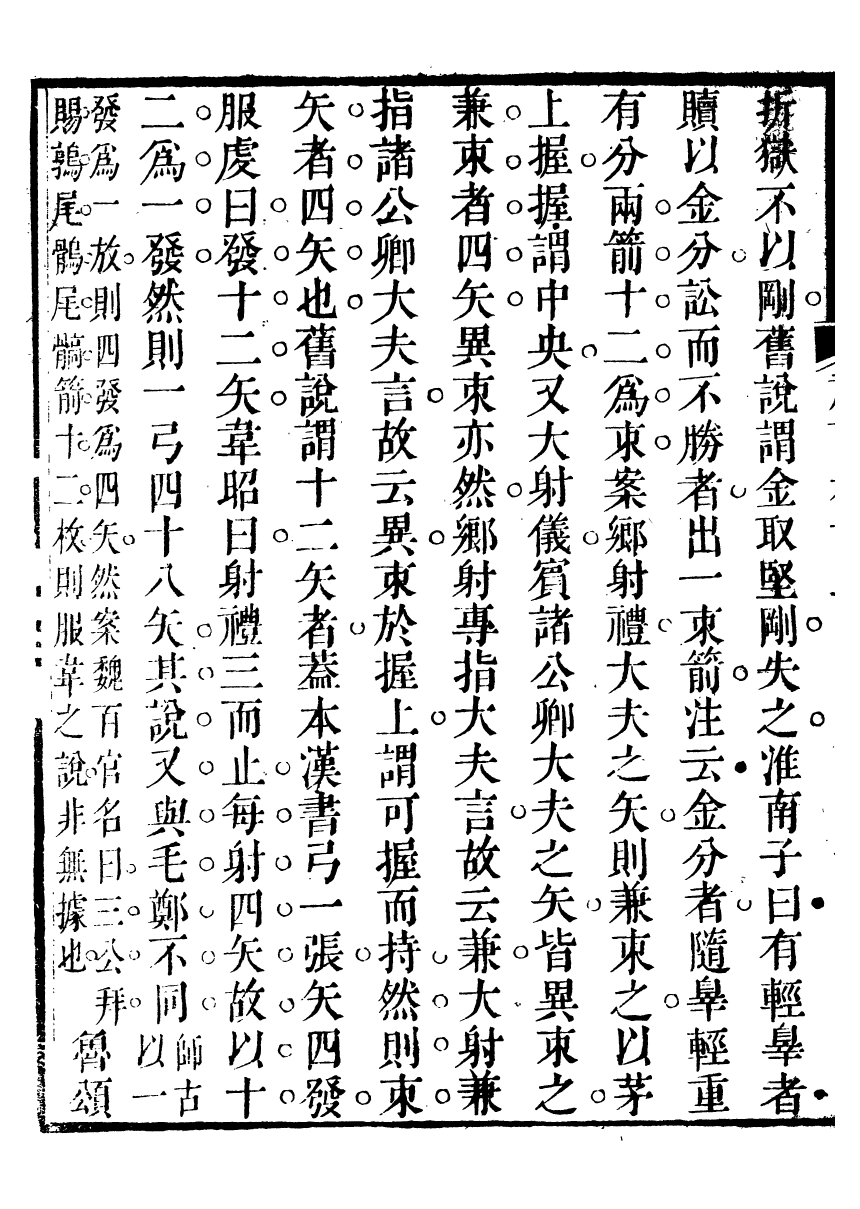 折獄不以剛舊說謂金取堅剛失之淮南子曰有輕辠者
贖以金分訟而不勝者出一束箭注云金分者隨辠輕重
有分兩箭十二爲束案鄉射禮大夫之矢則兼束之以茅
上握握謂中央又大射儀賓諸公卿大夫之矢皆異束之
兼束者四矢異束亦然鄉射專指大夫言故云兼大射兼
指諸公卿大夫言故云異束於握上謂可握而持然則束
矢者四矢也舊說謂十二矢者蓋本漢書弓一張矢四發
服虔曰發十二矢韋昭曰射禮三而止每射四矢故以十
二爲一發然則一弓四十八矢其說又與毛鄭不同師古以一
發爲一放則四發爲四矢然案魏百官名曰三公拜
賜鶉尾鶻尾髇箭十二枚則服韋之說非無據也魯頌